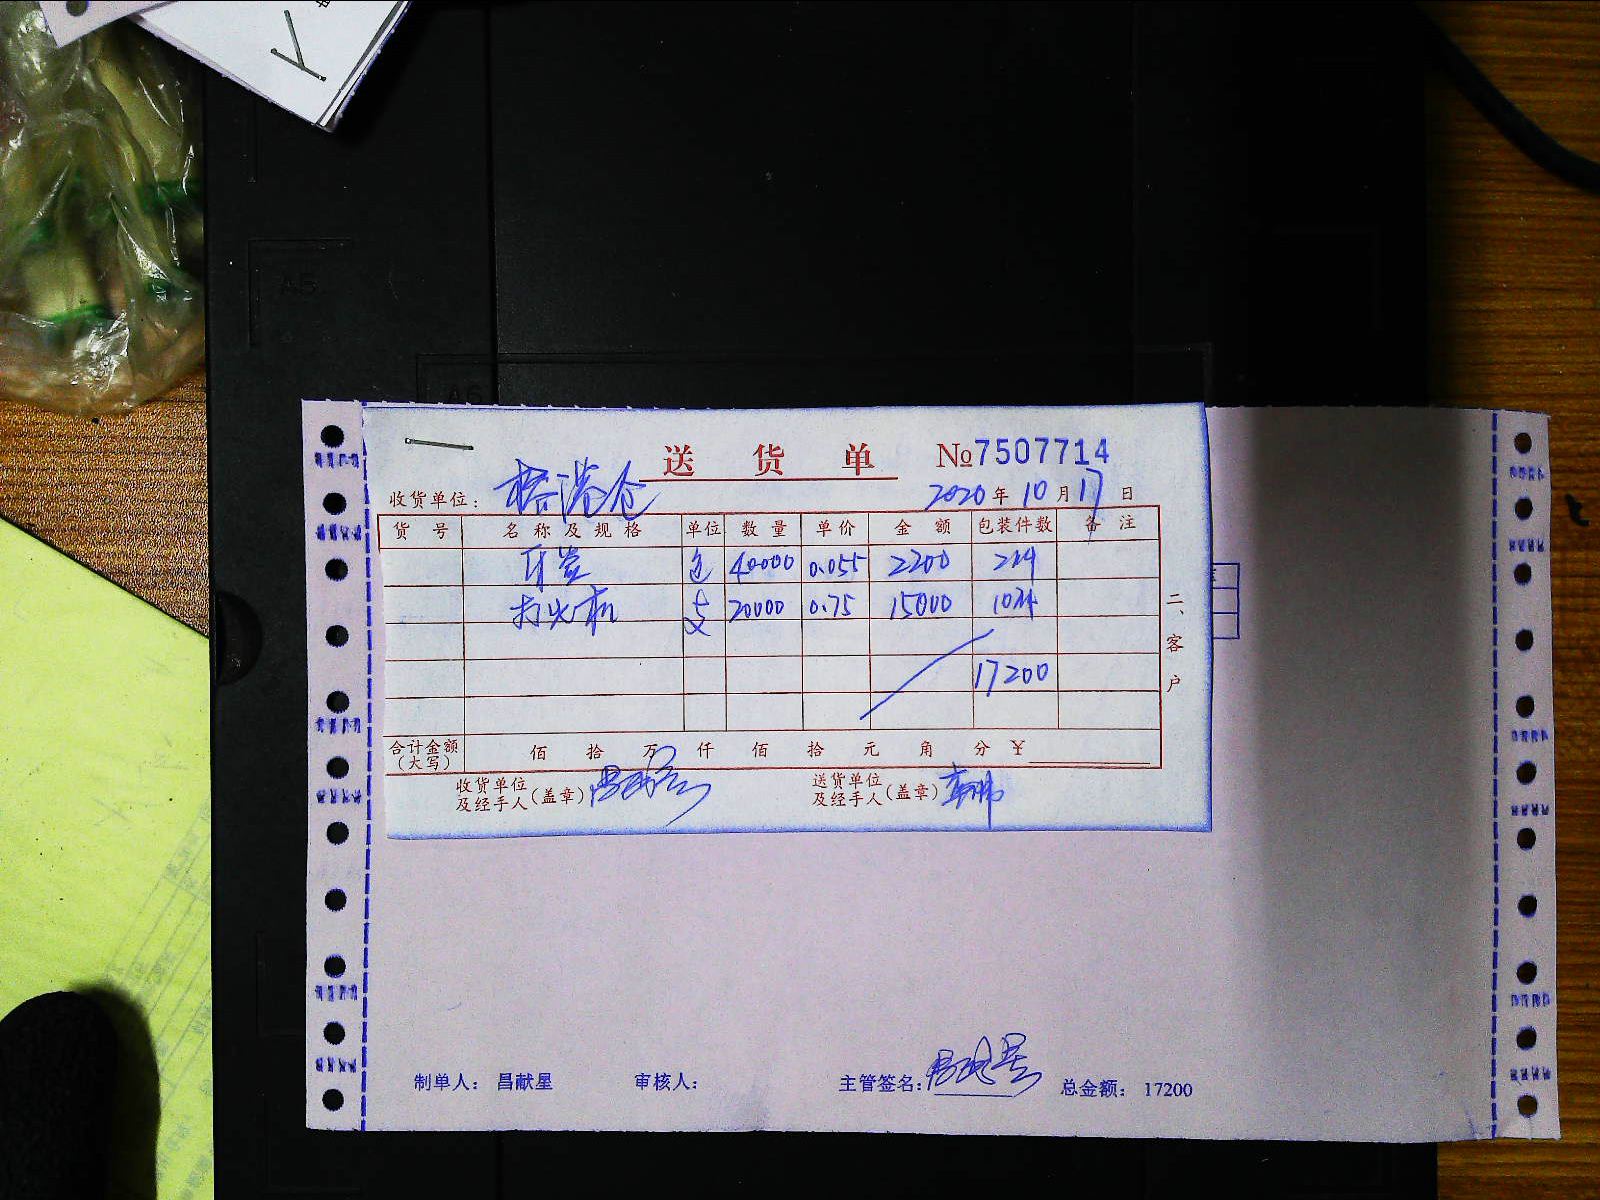 A5
A6
送 货 单 №7507714
收货单位: 仓 2020年10月17日
货 号 名 称 及 规 格 单位 数 量 单 价 金 额 包装件数 备 注
牙签 包 40000 0.055 2200 2件
打火机 支 20000 0.75 15000 10件
17200
二、客户
合计金额(大写) 佰 拾 万 仟 佰 拾 元 角 分 ¥
收货单位及经手人(盖章) 送货单位及经手人(盖章)
制单人: 昌献星 审核人: 主管签名: 昌献星 总金额: 17200